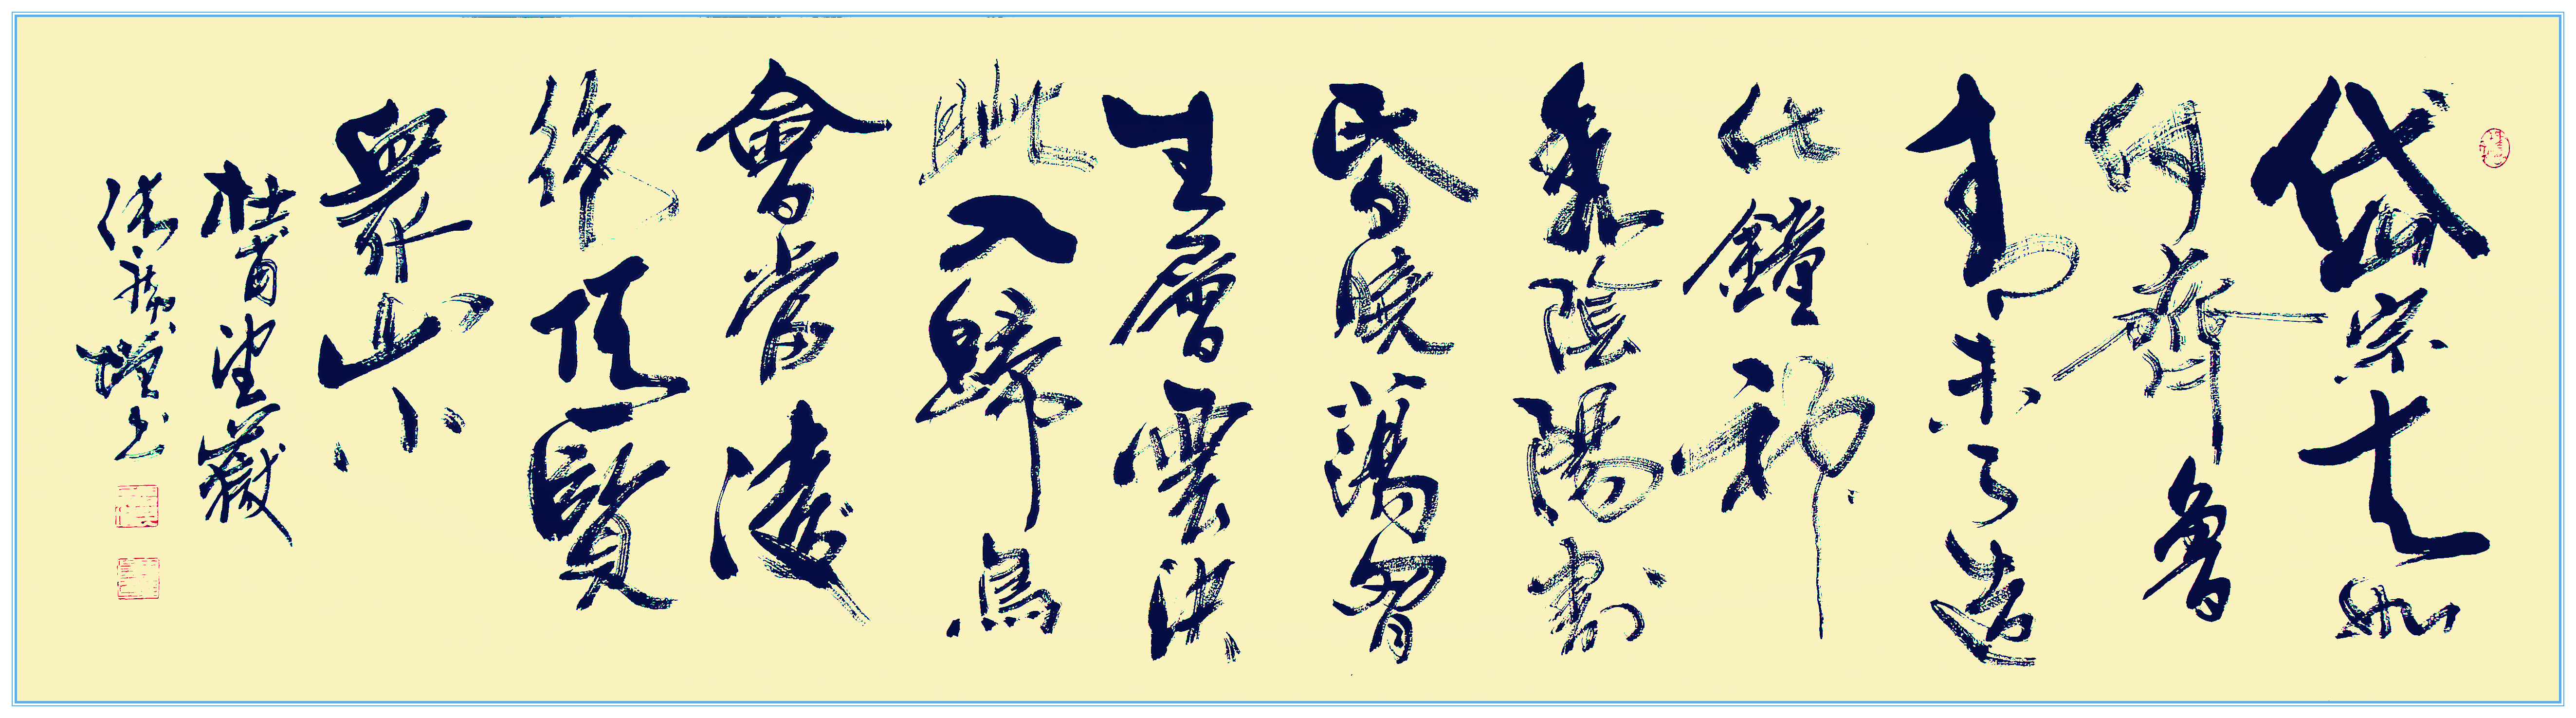 岱宗夫如
何齊魯
青未了造
化鍾神
秀陰陽割
昏曉蕩胷
生層雲決
眦入歸鳥
會當凌
絕頂一覽
眾山小
杜甫望嶽
書